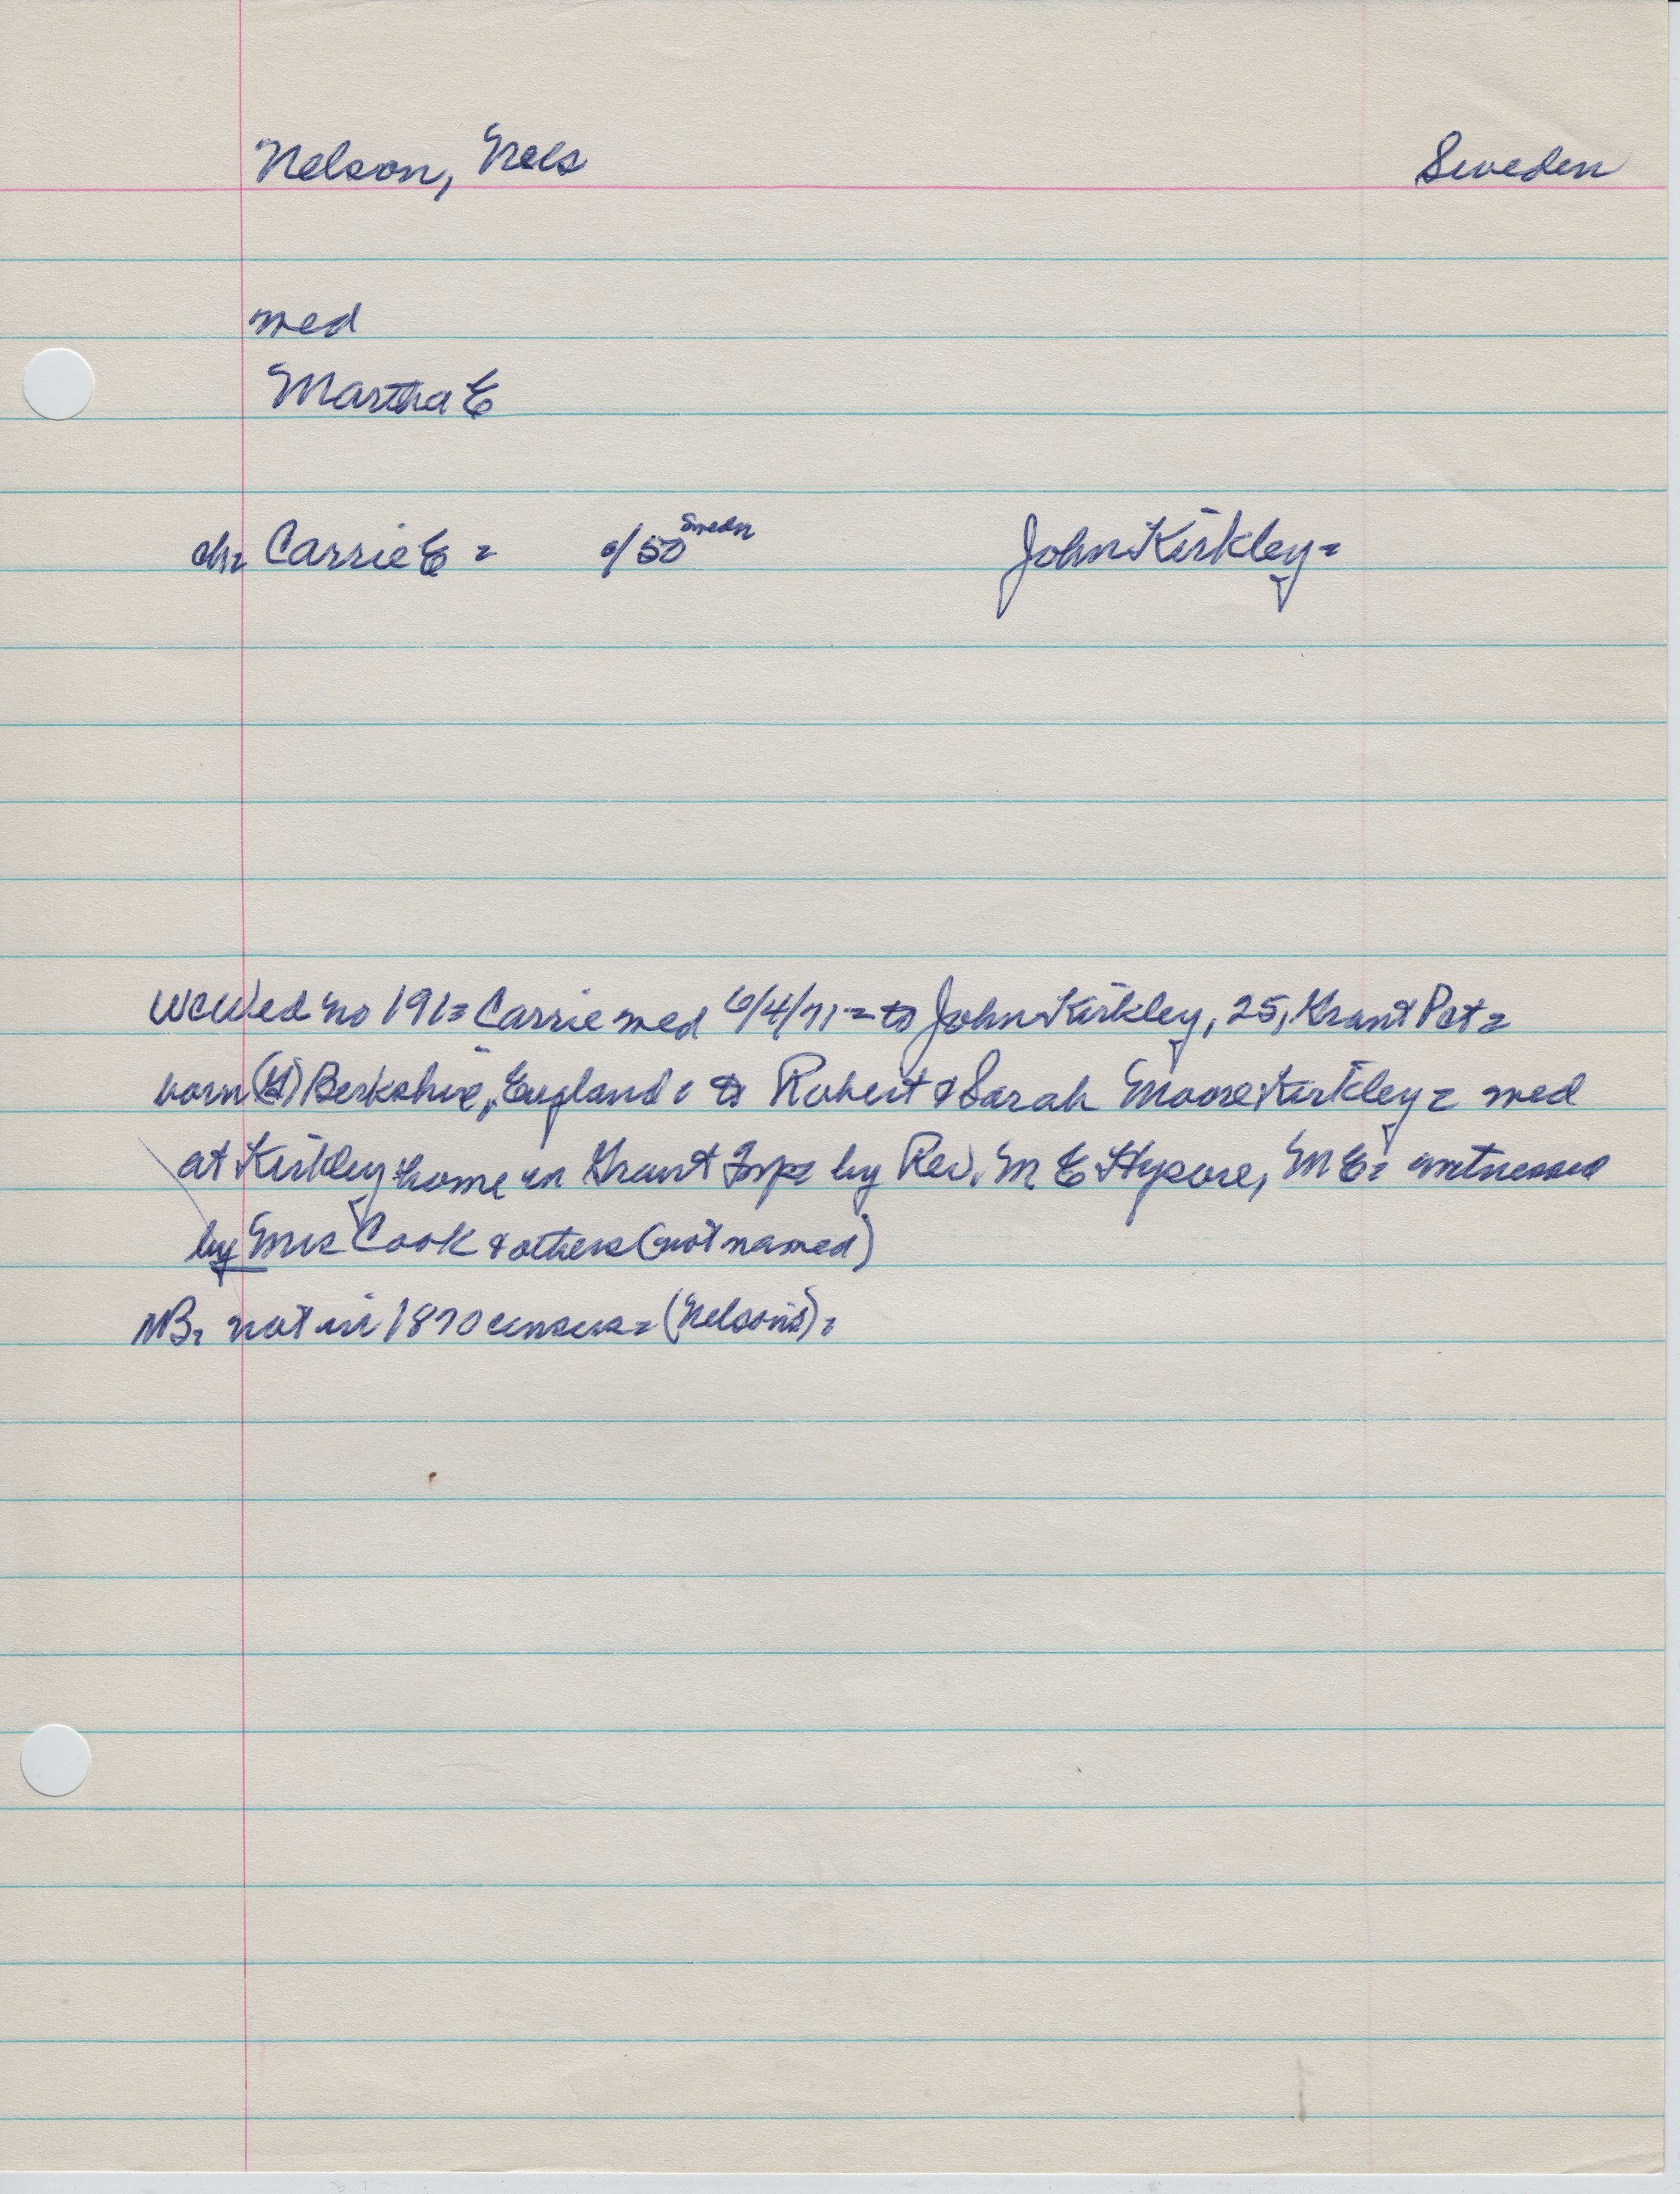 Nelson, Nels Sweden
med
Martha E
ch= Carrie E = c/50 Sweden John Kirkley=
WCWed no 191= Carrie med 6/4/71 = to John Kirkley, 25, Grant Pct=
born (H) Berkshire, England = to Robert & Sarah Moore Kirkley = med
at Kirkley home in Grant Twp= by Rev. M E, M E= witnessed
by Mrs Cook & others (not named)
NB= not in 1870 census = (Nelsons) =